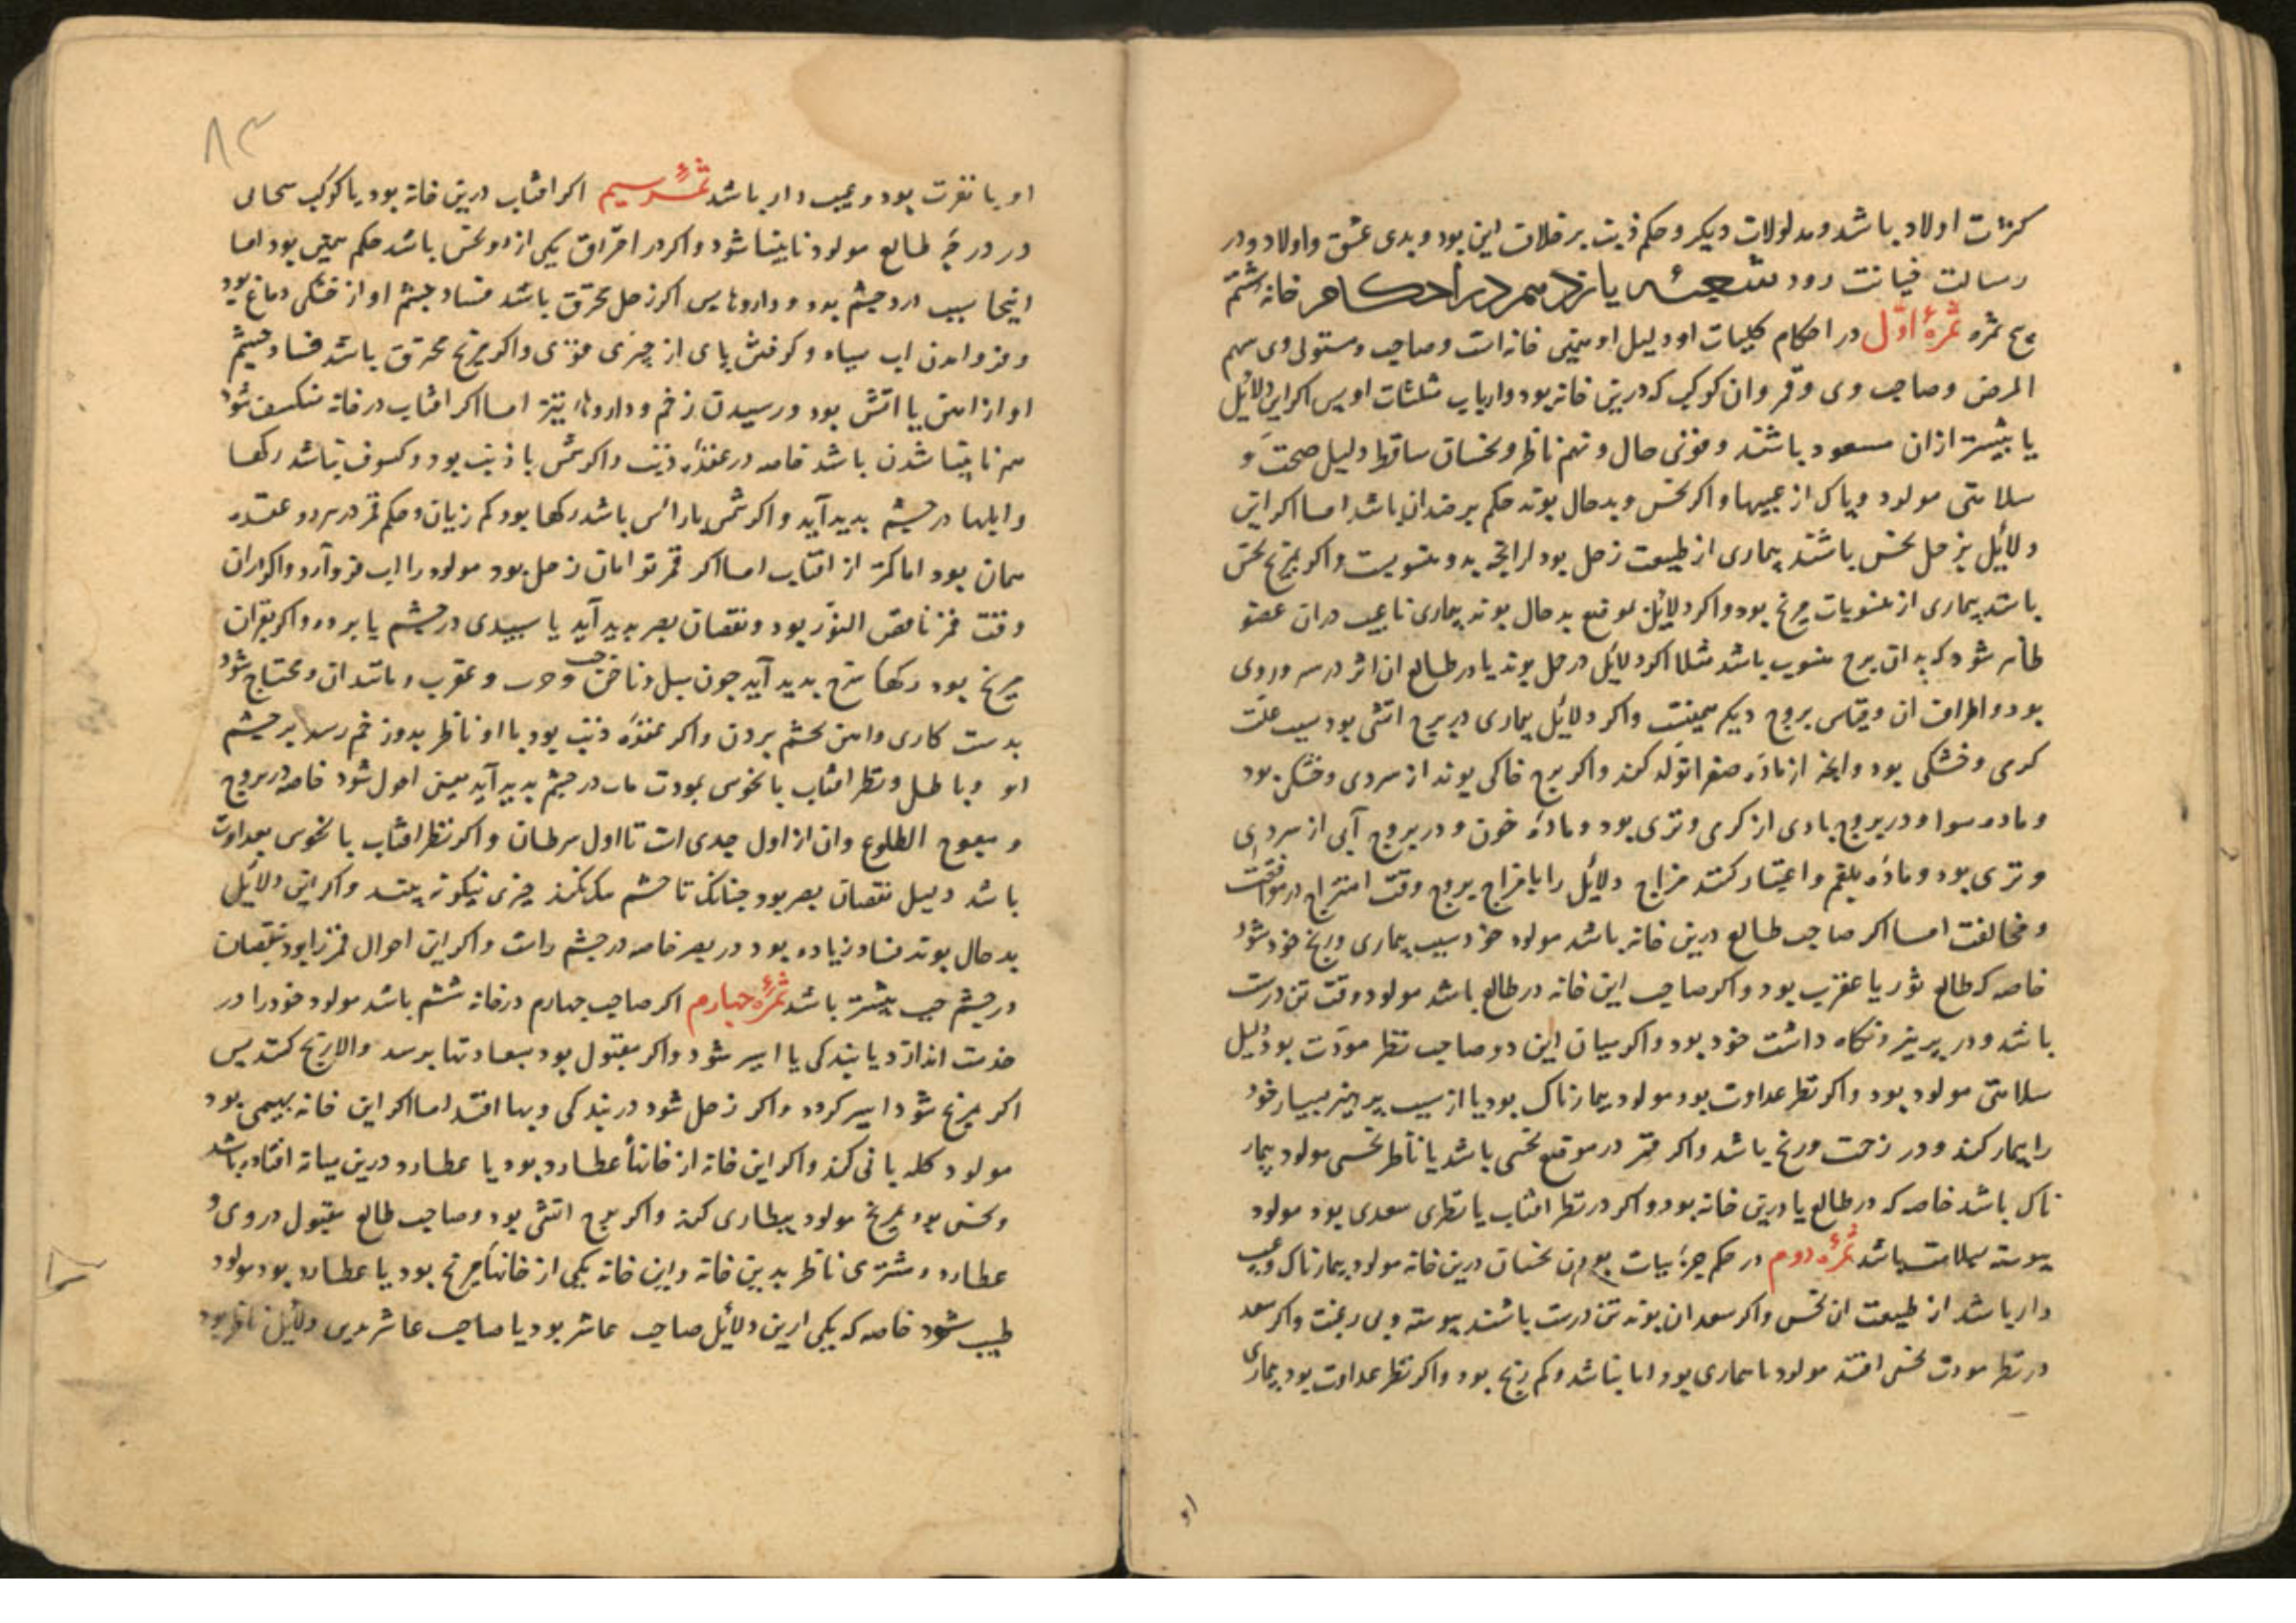 کثرت اولاد باشد و مدلولات دیکر و حکم ذنب بر خلاف این بود و بدی عشق و اولاد و در
رسالت خیانت رود شعبه یازدهم در احکام خانه ششم
پنج ثمره ثمرهٔ اوّل در احکام کلیات او دلیل او همین خانه است و صاحب و مستولی وی سهم
المرض و صاحب وی و قمر و ان کوکب که درین خانه بود و ارباب مثلثات او پس اکر این دلائل
یا بیشتر ازان مسعود باشند و قوی حال و بهم ناظر و نحسان ساقط دلیل صحت و
سلامتی مولود و پاک از عیبها و اکر نحس و بدحال بوند حکم بر ضد ان باشد اما اکر این
دلائل بزحل نحس باشند بیماری از طبیعت زحل بود از انچه بدو منسوبست و اکر بمریخ نحس
باشد بیماری از منسوبات مریخ بود و اکر دلائل بموقع بدحال بوند بیماری تا عیب دران عضو
ظاهر شود که بدان برج منسوب باشد مثلا اکر دلائل در حمل بوند یا در طالع ان اثر در سر و روی
بود و اطراف ان و قیاس بروج دیکر همینست و اکر دلائل بیماری در برج اتشی بود سبب علت
کرمی و خشکی بود و انچه از مادّه صفرا تولد کند و اکر برج خاکی بوند از سردی و خشکی بود
و ماده سودا و در بروج بادی از کرمی و تری بود و مادهٔ خون و در بروج آبی از سردی
و تری بود و مادّه بلغم و اعتبار کنند مزاج دلائل را با مزاج بروج وقت امتزاج در موافقت
و مخالفت اما اکر صاحب طالع درین خانه باشد مولود خود سبب بیماری و رنج خود شود
خاصه که طالع ثور یا عقرب بود و اکر صاحب این خانه در طالع باشد مولود وقت تن درست
باشد و در پرهیز و نکاه داشت خود بود و اکر میان این دو صاحب نظر مودّت بود دلیل
سلامتی مولود بود و اکر نظر عداوت بود مولود بیمارناک بود یا از سبب پرهیز بسیار خود
را بیمار کند و در زحمت و رنج باشد و اکر قمر در موقع نحسی باشد یا ناظر نحسی مولود بیمار
ناک باشد خاصه که در طالع یا درین خانه بود و اکر در نظر افتاب یا نظری سعدی بود مولود
پیوسته بسلامت باشد ثمرهٔ دوم در حکم جزئیات بودن نحسان درین خانه مولود بیمارناک و عیب
دار باشد از طبیعت ان نحس و اکر سعدان بوند تن درست باشند پیوسته و بی رغبت و اکر سعد
در نظر مودت نحس افتد مولود با بیماری بود اما بناشد و کم رنج بود و اکر نظر عداوت بود بیماری
۸۳
او با نفرت بود و عیب دار باشد ثمرهٔ سیم اکر افتاب درین خانه بود با کوکب سحابی
در درجهٔ طالع مولود نابینا شود و اکر در احتراق یکی از دو نحس باشد حکم همین بود اما
اینجا سبب درد چشم بود و داروها پس اکر زحل محترق باشد فساد چشم او از خشکی دماغ بود
و فرو امدن اب سیاه و کوفتش پای از چیزی موذی و اکر مریخ محترق باشد فساد چشم
او از اهن یا اتش بود و رسیدن زخم و داروها تیز اما اکر افتاب در خانه منکسف شود
هم نابینا شدن باشد خاصه در عقدهٔ ذنب و اکر شمس با ذنب بود و کسوف نباشد رکها
و ابلها در چشم پدید آید و اکر شمس با راس باشد رکها بود کم زیان و حکم قمر در هر دو عقده
همان بود اما کمتر از افتاب اما اکر قمر توامان زحل بود مولود را اب فرو آرد و اکر ان
وقت قمر ناقص النوّر بود و نقصان بصر پدید آید یا سپیدی در چشم یا برود و اکر بقران
مریخ بود رکها سرخ پدید آید چون سبل و ناخن و جرب و عقرب و مانند ان و محتاج شود
بدست کاری و اهن بچشم بردن و اکر عقدهٔ ذنب بود با او ناظر بدو زخم رسد بر چشم
او و باطل و نظر افتاب با نحوس بمودت مات در چشم پدید آید یعنی احول شود خاصه در بروج
معوج الطلوع وان از اول جدی است تا اول سرطان و اکر نظر افتاب با نحوس بعداوت
باشد دلیل نقصان بصر بود چنانک تا چشم نکند چیزی نیکو نه بیند و اکر این دلائل
بدحال بوند فساد زیاده بود در بصر خاصه در چشم راست و اکر این احوال قمر را بود نقصان
در چشم چپ بیشتر باشد ثمرهٔ چهارم اکر صاحب چهارم در خانه ششم باشد مولود خود را در
خدمت اندازد یا بندکی یا اسیر شود و اکر مقبول بود بسعادتها برسد و الا رنج کشد پس
اکر مریخ شود اسیر کردد و اکر زحل شود در بندکی و بها افتد اما اکر این خانه بهیمی بود
مولود کله بانی کند و اکر این خانه از خانهاء عطارد بود یا عطارد درین میانه افتاده باشد
و نحس بود بمریخ مولود بیطاری کند و اکر برج اتشی بود و صاحب طالع مقبول در وی و
عطارد و مشتری ناظر بدین خانه و این خانه یکی از خانهاء مریخ بود یا عطارد بود مولود
طبیب شود خاصه که یکی ازین دلائل صاحب عاشر بود یا صاحب عاشر بدین دلائل ناظر بود